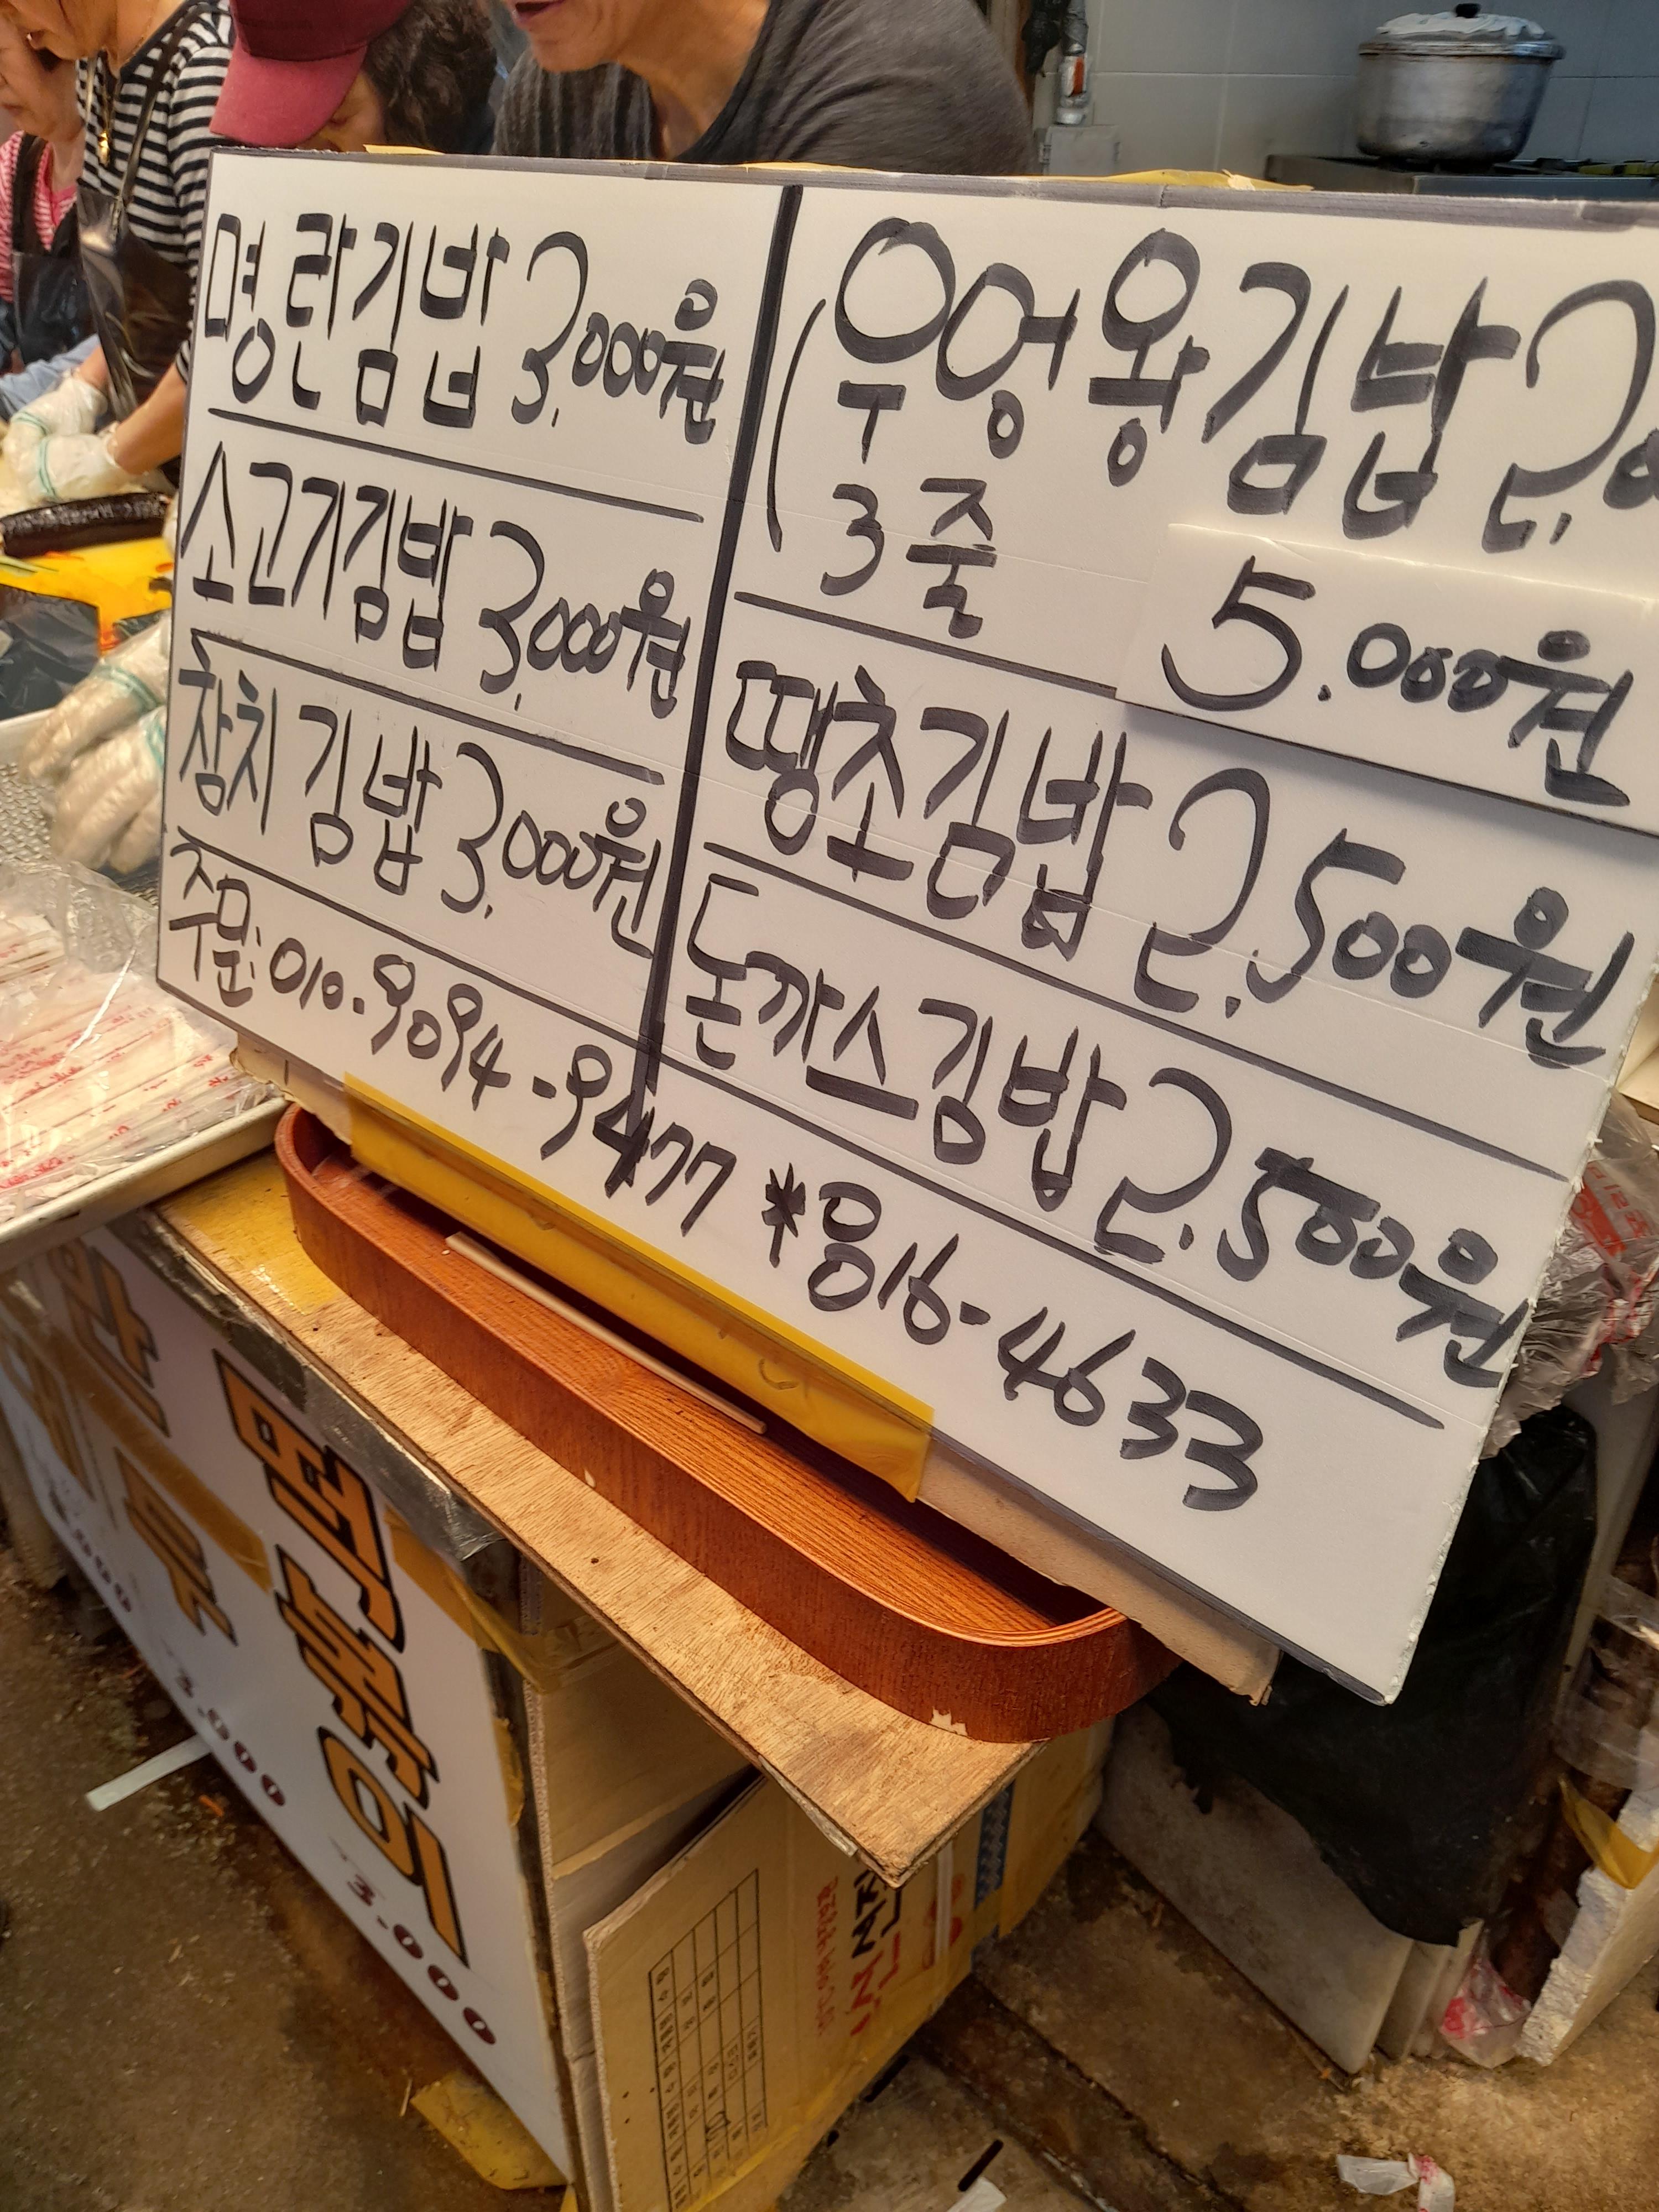 명란김밥 3,000원
소고기김밥 3,000원
참치김밥 3,000원
우엉왕김밥
(3줄 5.000원
땡초김밥 2.500원
돈까스김밥 2.500원
주문: 010.9094-9477 *응016-4633
떡볶이
3.000
3.000